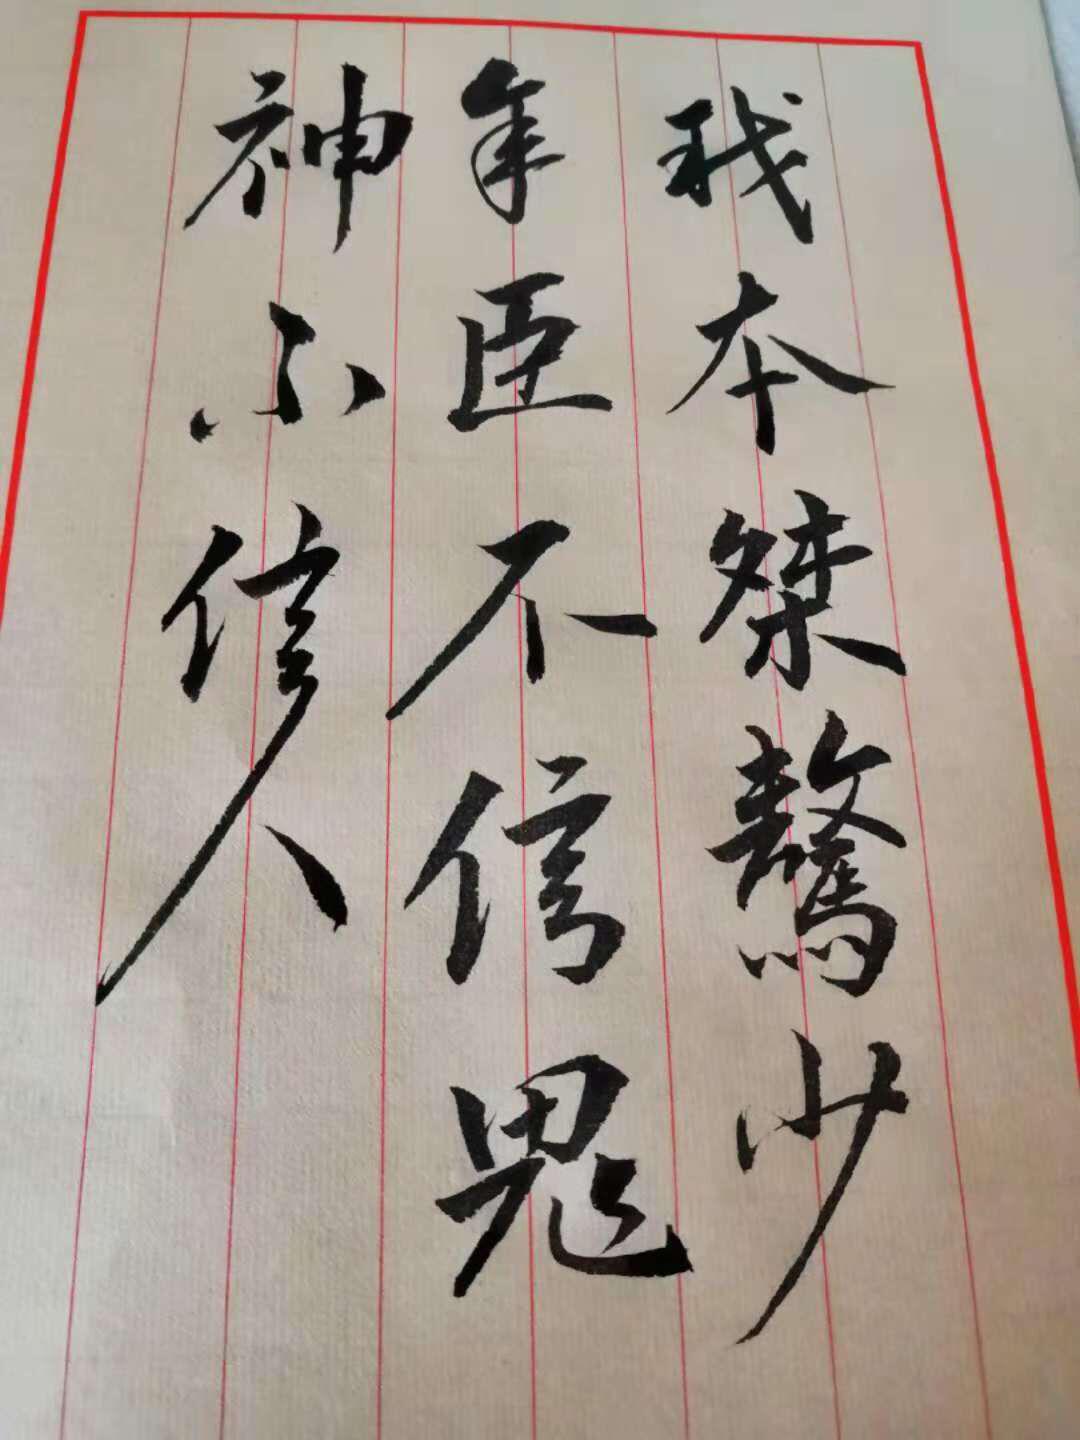 我本桀驁少
年臣不信鬼
神不信人